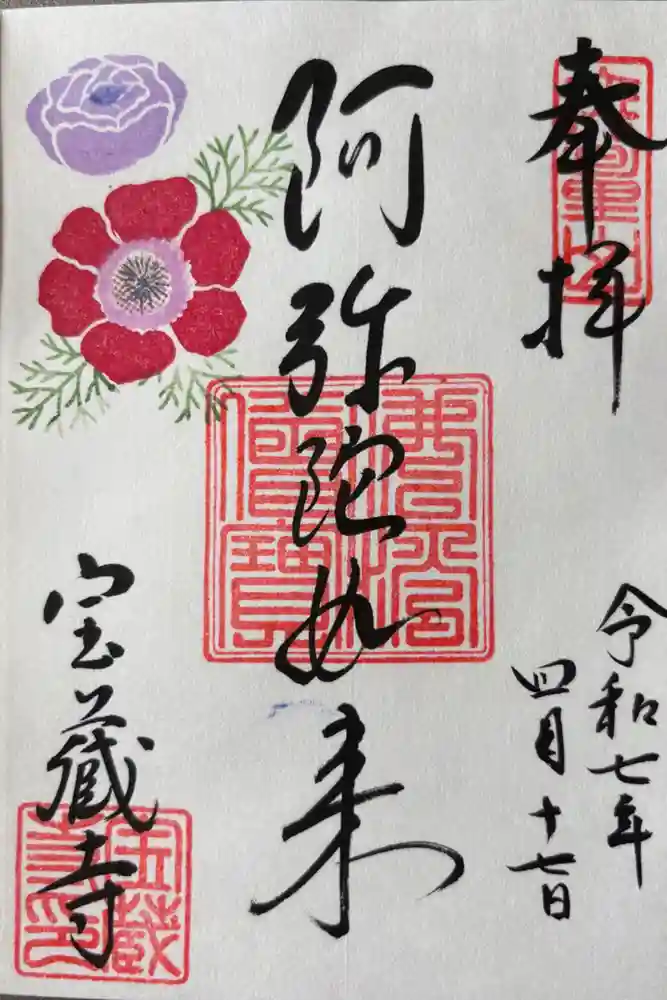 奉拝
令和七年
四月十七日
阿弥陀如来
宝蔵寺
佛法僧寶